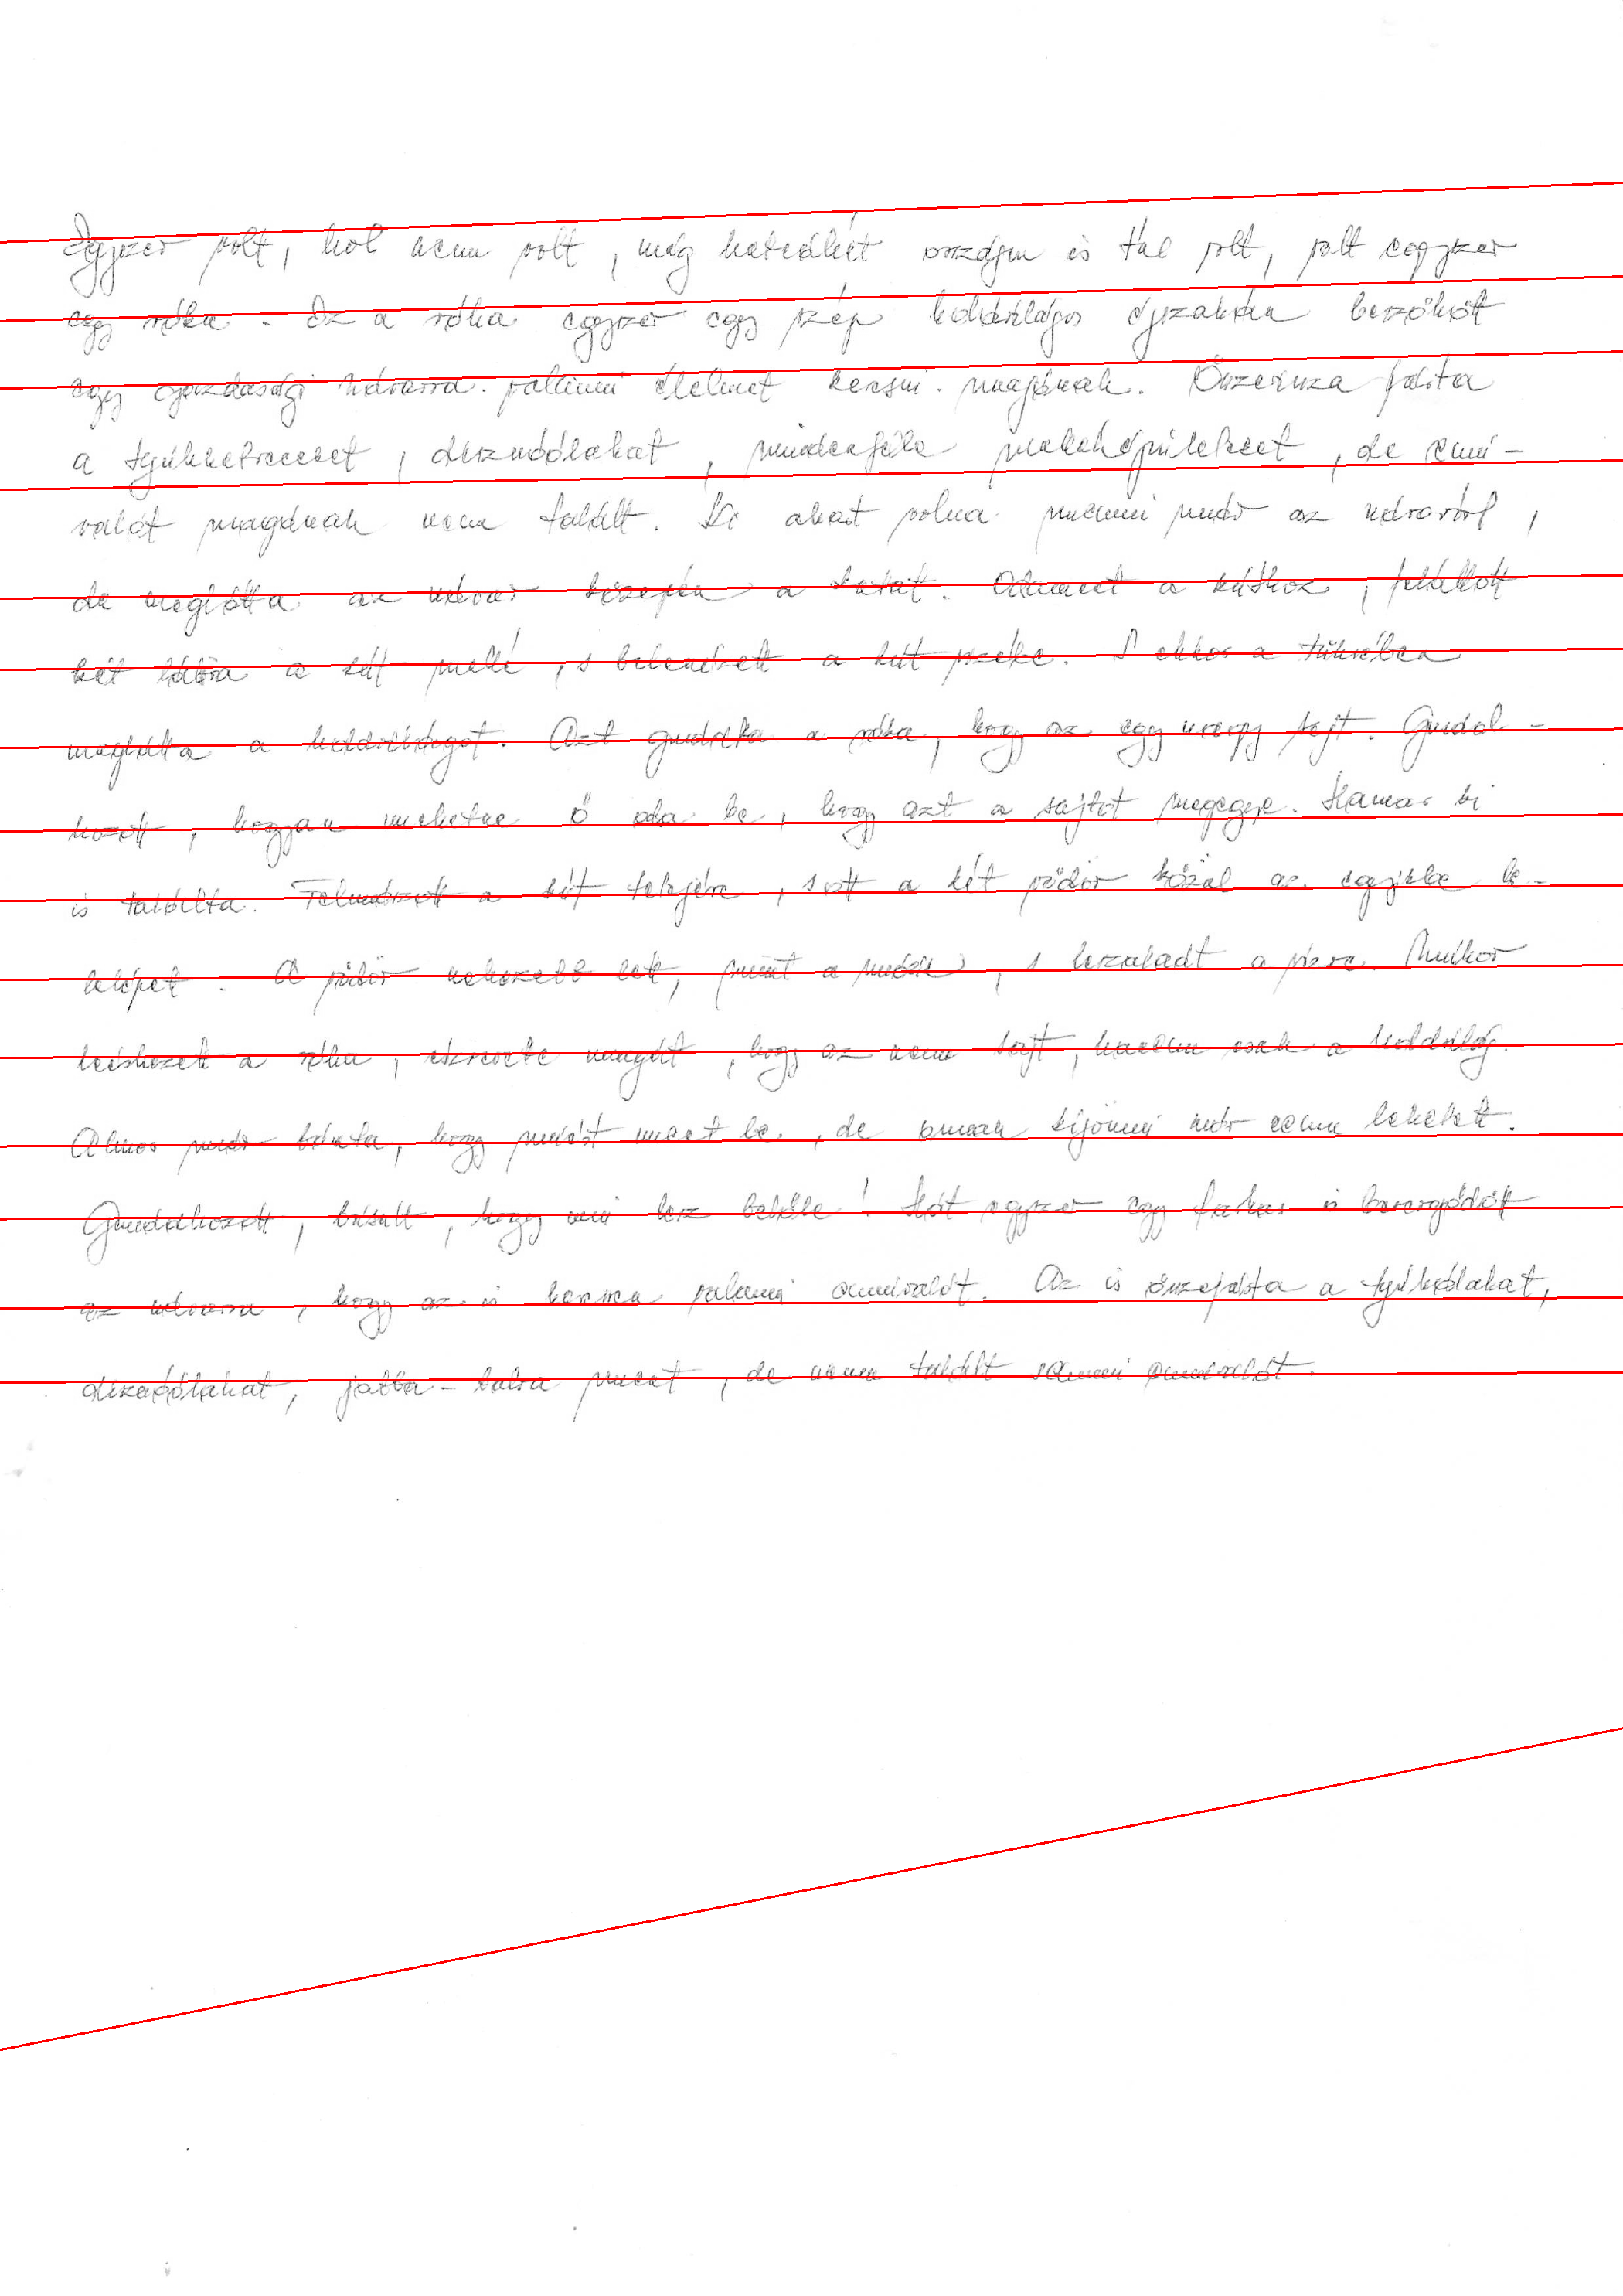 Egyszer volt, hol nem volt, még hetedhét országon is túl volt, volt egyszer
egy róka. Ez a róka egyszer egy szép holdvilágos éjszakán beszökött
egy gazdasági udvarra valami élelmet keresni magának. Össze-vissza járta
a tyúkketreceket, disznóólakat, mindenféle melléképületeket, de enni-
valót magának nem talált. Ki akart volna menni már az udvaról,
de meglátta az udvar közepén a kutat. Odament a kúthoz, felállott
két lábra a kút mellé, s belenézett a kút vizébe. S akkor a tükrében
meglátta a holdvilágot. Azt gondolta a róka, hogy az egy nagy sajt. Gondol-
kozott, hogyan mehetne ő oda be, hogy azt a sajtot megegye. Hamar ki
is találta. Felmászott a kút tetejére, s ott a két vödör közül az egyikbe be-
lelépet. A vödör nehezebb lett, mint a másik, s leszaladt a vízre. Amikor
leérkezett a róka, észrevette magát, hogy az nem sajt, hanem csak a holdvilág.
Akkor már bánta, hogy miért ment be, de onnan kijönni már nem lehetett.
Gondolkozott, búsult, hogy mi lesz belőle! Hát egyszer egy farkas is bevergődött
az udvarra, hogy az is keressen valami ennivalót. Az is összejárta a tyúkólakat,
disznóólakat, jobbra-balra ment, de nem talált semmi ennivalót.